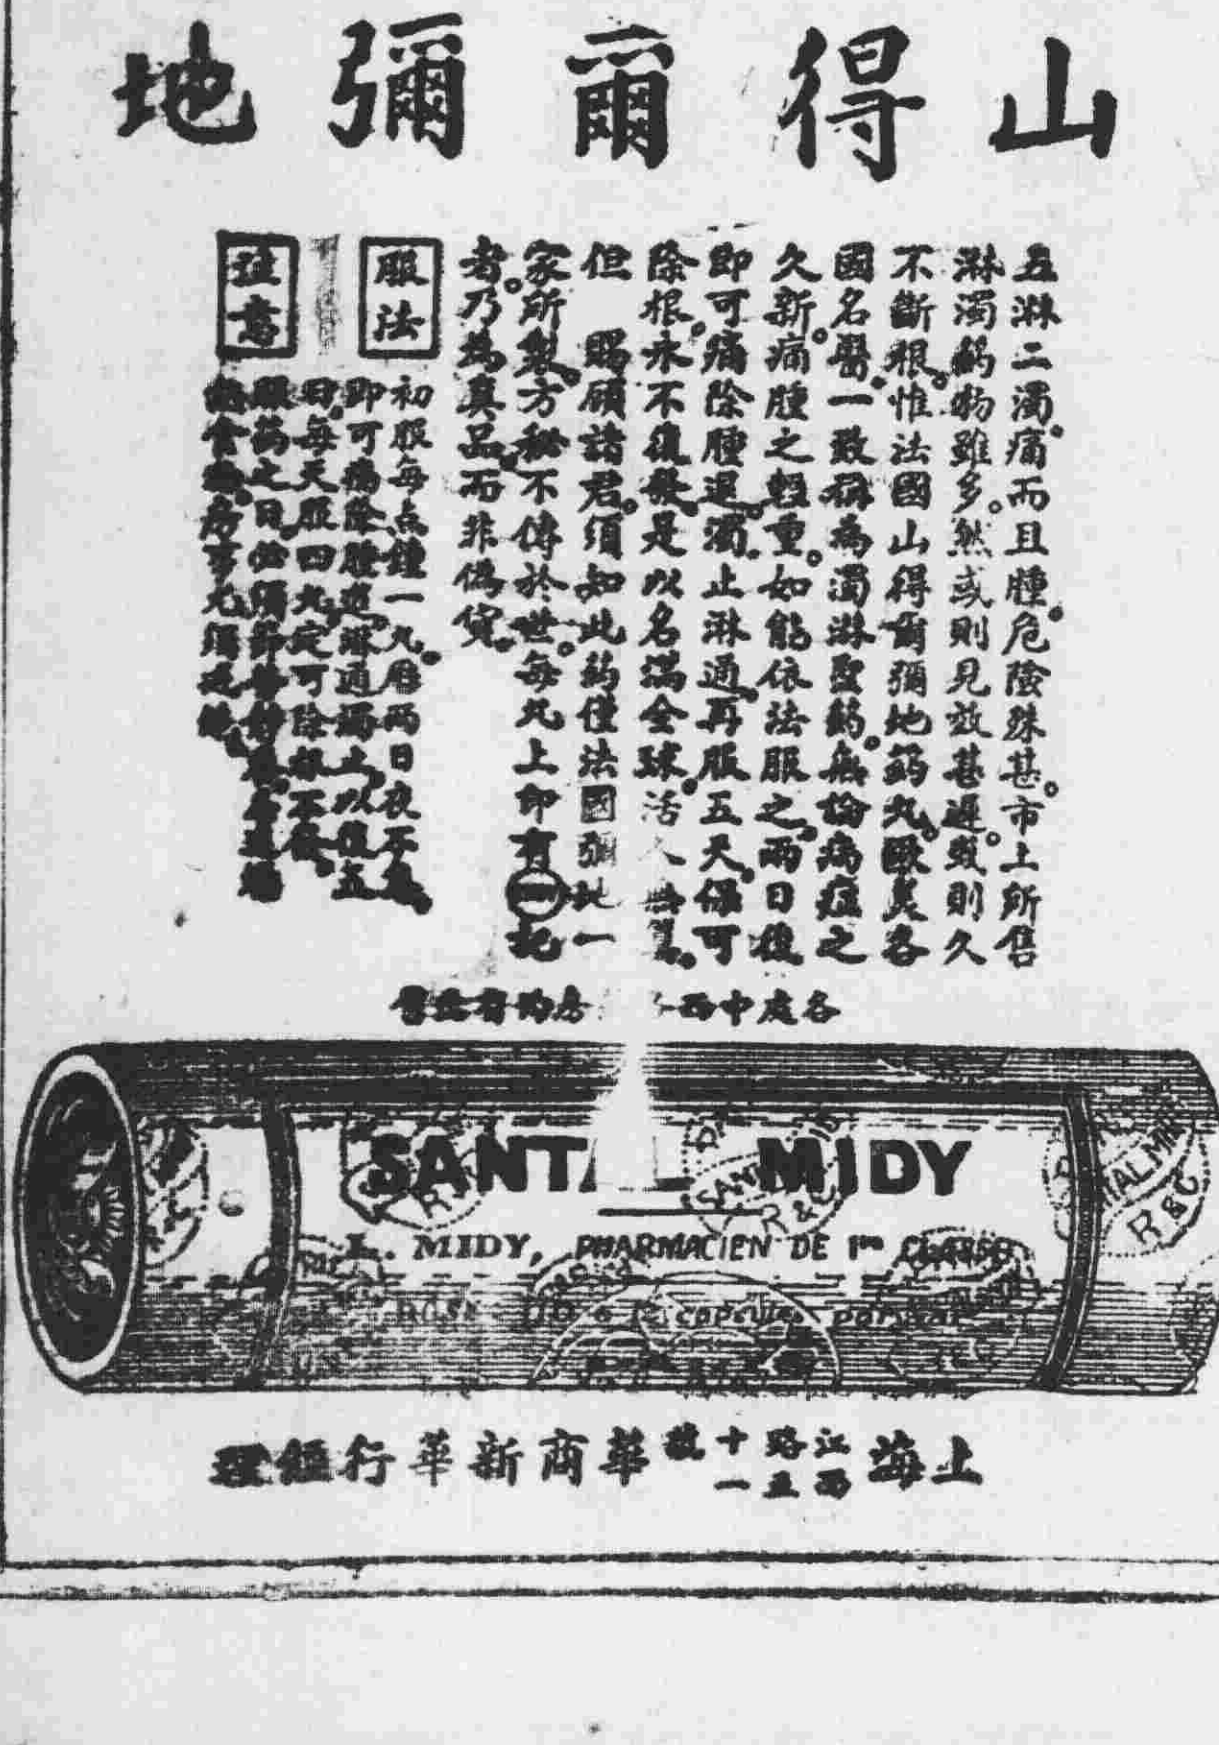 山得爾彌地
五淋二濁。痛而且腫。危險殊甚。市上所售
淋濁葯物雖多。然或則見效甚遲。或則久
不斷根。惟法國山得爾彌地葯丸。歐美各
國名醫。一致稱爲濁淋聖葯。無論病症之
久新。痛腫之輕重。如能依法服之。兩日後
即可痛除腫退。濁止淋通。再服五天。保可
除根。永不復發。是以名滿全球。活人無
但 賜顧諸君。須知此葯僅法國彌地一
家所製。方秘不傳於世。每丸上印有 記
者。乃爲眞品。而非僞貨。
服法
初服每点鐘一丸。歷兩日夜不
即可痛除腫退。淋通濁止。以後五
日。每天服四丸。定可除根不發。
注意
服葯之日。
房事尤須
各處中西 房均有
SANTAL MIDY
L. MIDY, PHARMACIEN DE 1re CLASSE
capsules par jour
上海江西路五十一號華商新華行經理